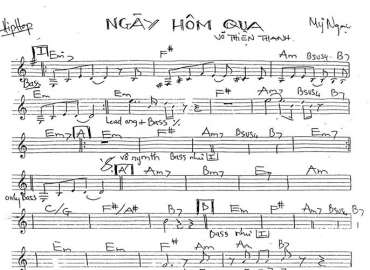 HipHop NGÀY HÔM QUA Mỹ Ngọc
VÕ THIỆN THANH
I Em7 F# Am Bsus4 B7
Bass
Em Em F# Am7 Bsus4 B7
Lead ang + Bass %
Em7 A Em F# Am7 Bsus4 B7 Em7
Bass như I
A' Am7 B7 Em Em7 E7 Am
only Bass
C/G F#/A# B7 B Em F# Am7 Bsus4 B7
Bass như I
Em Em F# Am Am B7